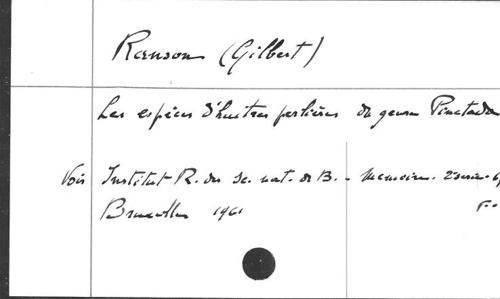 Ranson (Gilbert)
Les espèces d'huitres perlières du genre Pinctada
Voir Institut R. des Sc. nat. de B. - Memoires. 2 serie.
Bruxelles 1961